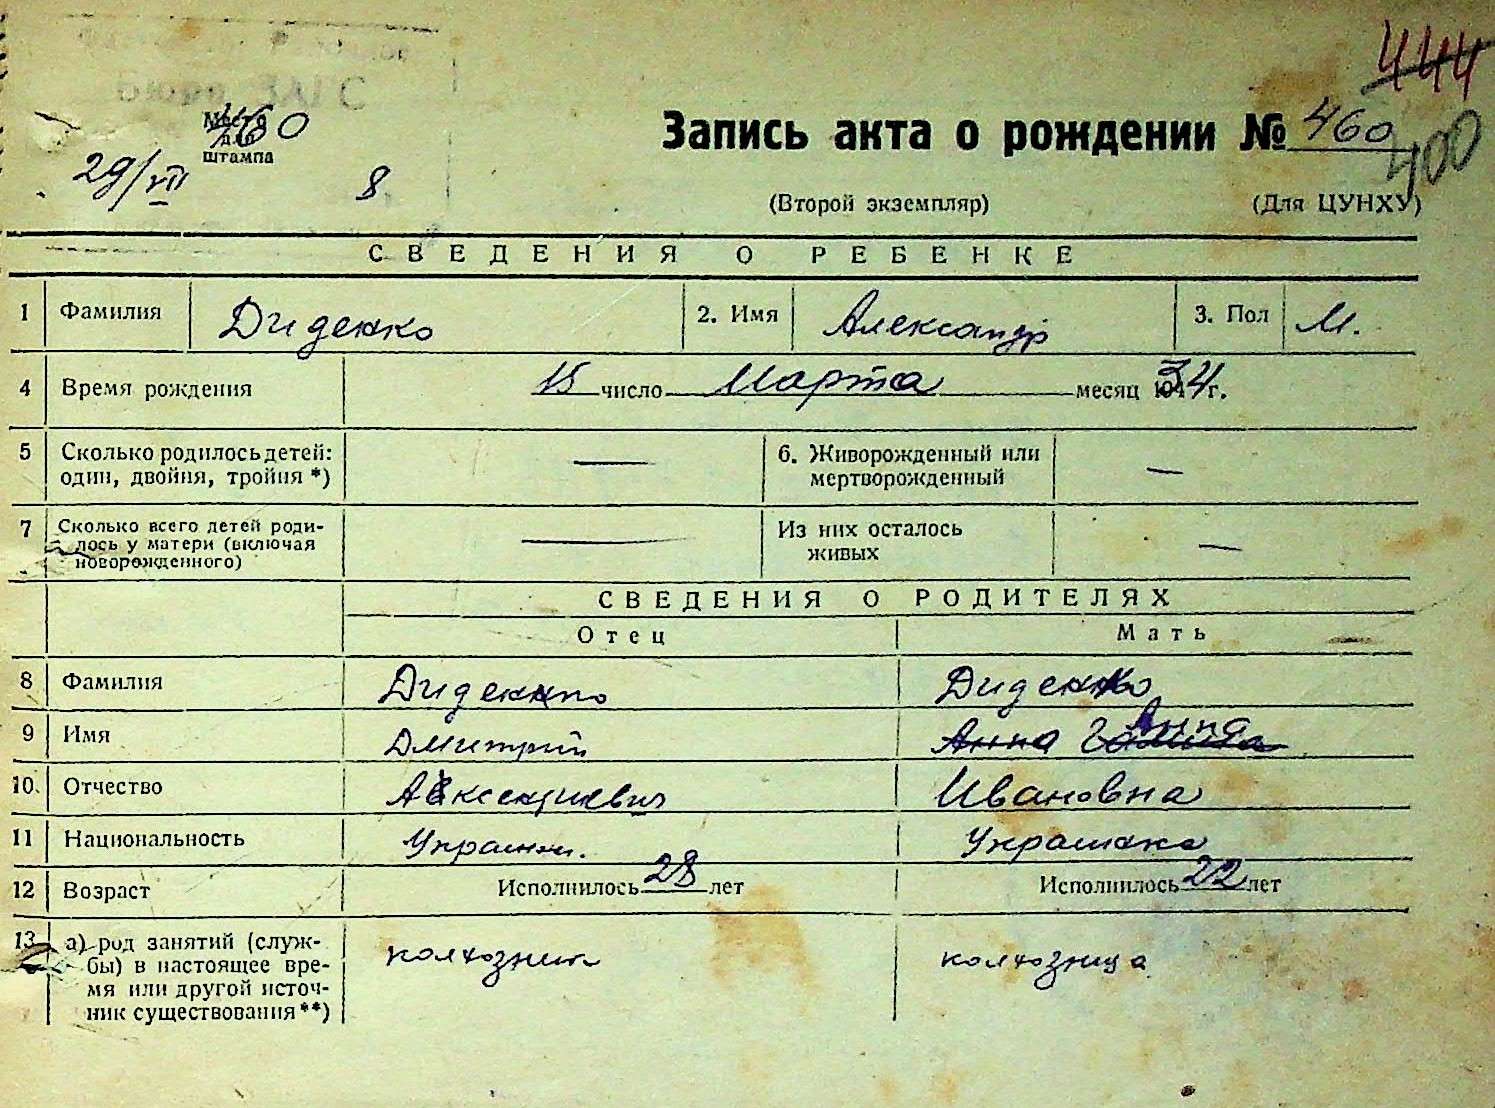 444
Бюро ЗАГС
460
Место для штампа
Запись акта о рождении № 460
400
29/VII 8
(Второй экземпляр) (Для ЦУНХУ)
СВЕДЕНИЯ О РЕБЕНКЕ
1 Фамилия Диденко 2. Имя Александр 3. Пол М.
4 Время рождения 15 число Марта месяц 34 г.
5 Сколько родилось детей: 6. Живорожденный или
один, двойня, тройня *) — мертворожденный —
7 Сколько всего детей роди- Из них осталось
лось у матери (включая — живых —
новорожденного)
СВЕДЕНИЯ О РОДИТЕЛЯХ
Отец Мать
8 Фамилия Диденко Диденко
9 Имя Дмитрий Анна Анна
10. Отчество Ивановна
11 Национальность Украин. Украинка
12 Возраст Исполнилось 28 лет Исполнилось 22 лет
13 а) род занятий (служ- колхозник колхозница
бы) в настоящее вре-
мя или другой источ-
ник существования **)